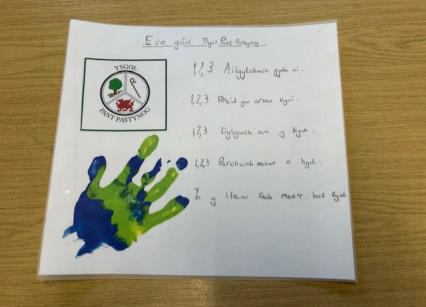 Eco gôd Ysgol Pant Pastynog.
YSGOL
PANT PASTYNOG
1,2,3 Ailgylchwch gyda ni.
1,2,3 Rhaid yw arbed
1,2,3 Dysgwch am y byd.
1,2,3 Parchwch natur o hyd.
Yn y llaw fach mae'r